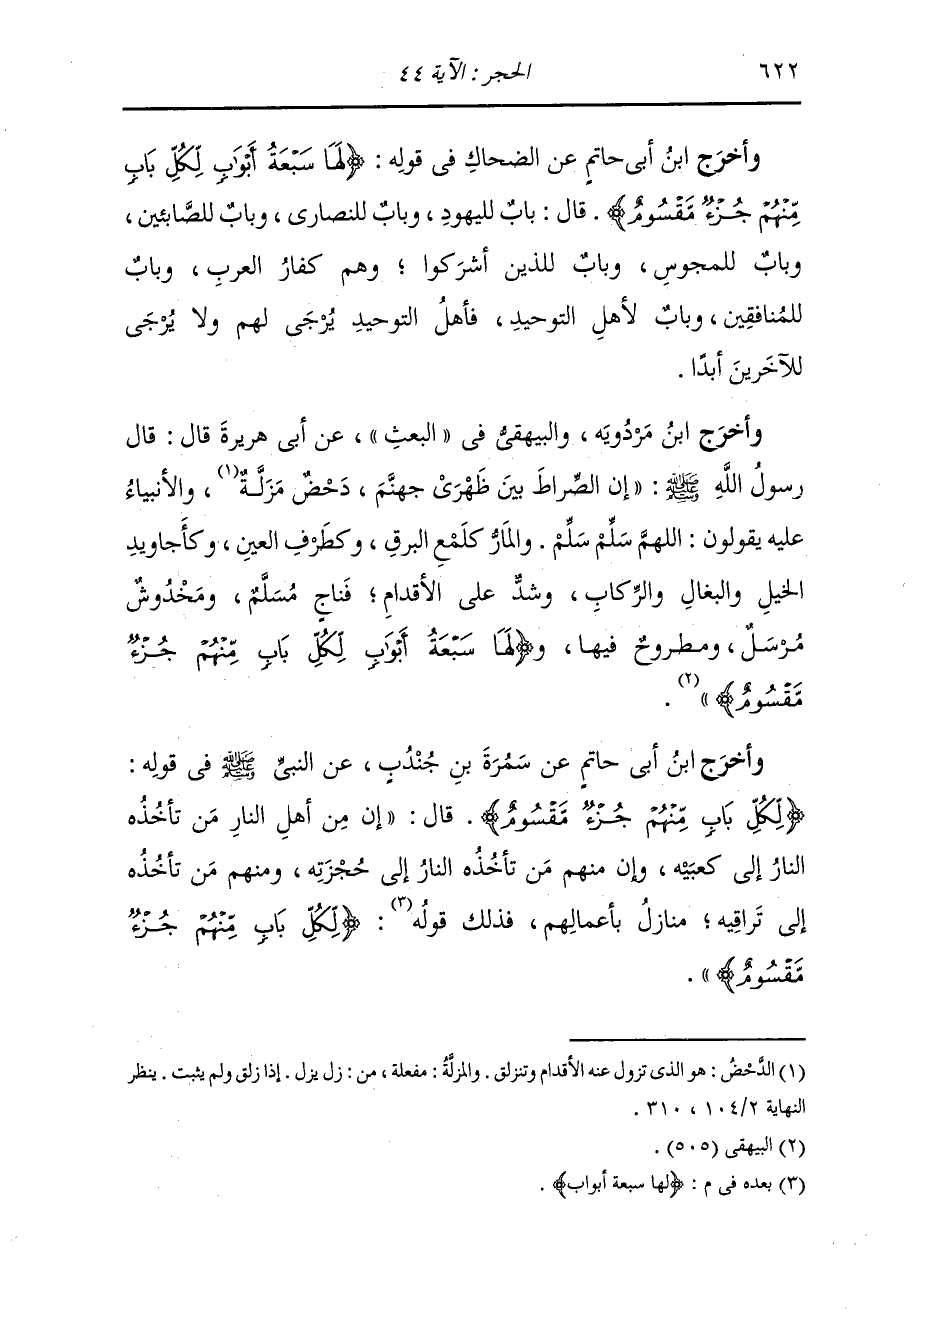 ٦٢٢
الحجر : الآية ٤٤
وأخرَج ابنُ أبى حاتمٍ عن الضحاكِ فى قولِه : ﴿لَهَا سَبْعَةُ أَبْوَٰبٍ لِّكُلِّ بَابٍ
مِّنْهُمْ جُزْءٌ مَّقْسُومٌ﴾ . قال : بابٌ لليهودِ ، وبابٌ للنصارى ، وبابٌ للصَّابئين ،
وبابٌ للمجوسِ ، وبابٌ للذين أشرَكوا ؛ وهم كفارُ العربِ ، وبابٌ
للمُنافقِين ، وبابٌ لأهلِ التوحيدِ ، فأهلُ التوحيدِ يُرْجَى لهم ولا يُرْجَى
للآخَرينَ أبدًا .
وأخرَج ابنُ مَرْدُويَه ، والبيهقىُّ فى «البعثِ» ، عن أبى هريرةَ قال : قال
رسولُ اللَّهِ ﷺ : «إن الصِّراطَ بينَ ظَهْرَىْ جهنَّمَ ، دَحْضٌ مَزَلَّةٌ(١) ، والأنبياءُ
عليه يقولون : اللهمَّ سَلِّمْ سَلِّمْ . والمَارُّ كلَمْعِ البرقِ ، وكطَرْفِ العينِ ، وكأَجاويدِ
الخيلِ والبغالِ والرِّكابِ ، وشدٌّ على الأقدامِ ؛ فَناجٍ مُسَلَّمٌ ، ومَخْدُوشٌ
مُرْسَلٌ ، ومطروحٌ فيها ، و﴿لَهَا سَبْعَةُ أَبْوَٰبٍ لِّكُلِّ بَابٍ مِّنْهُمْ جُزْءٌ
مَّقْسُومٌ﴾»(٢) .
وأخرَج ابنُ أبى حاتمٍ عن سَمُرَةَ بنِ جُنْدُبٍ ، عن النبىِّ ﷺ فى قولِه :
﴿لِّكُلِّ بَابٍ مِّنْهُمْ جُزْءٌ مَّقْسُومٌ﴾ . قال : «إن مِن أهلِ النارِ مَن تأخُذُه
النارُ إلى كعبَيْه ، وإن منهم مَن تأخُذُه النارُ إلى حُجْزَتِه ، ومنهم مَن تأخُذُه
إلى تَراقِيه ؛ منازلُ بأعمالِهم ، فذلك قولُه(٣) : ﴿لِّكُلِّ بَابٍ مِّنْهُمْ جُزْءٌ
مَّقْسُومٌ﴾» .
(١) الدَّحْضُ : هو الذى تزول عنه الأقدام وتنزلق . والمزلَّةُ : مفعلة ، من : زل يزل . إذا زلق ولم يثبت . ينظر
النهاية ١٠٤/٢ ، ٣١٠ .
(٢) البيهقى (٥٠٥) .
(٣) بعده فى م : ﴿لها سبعة أبواب﴾ .